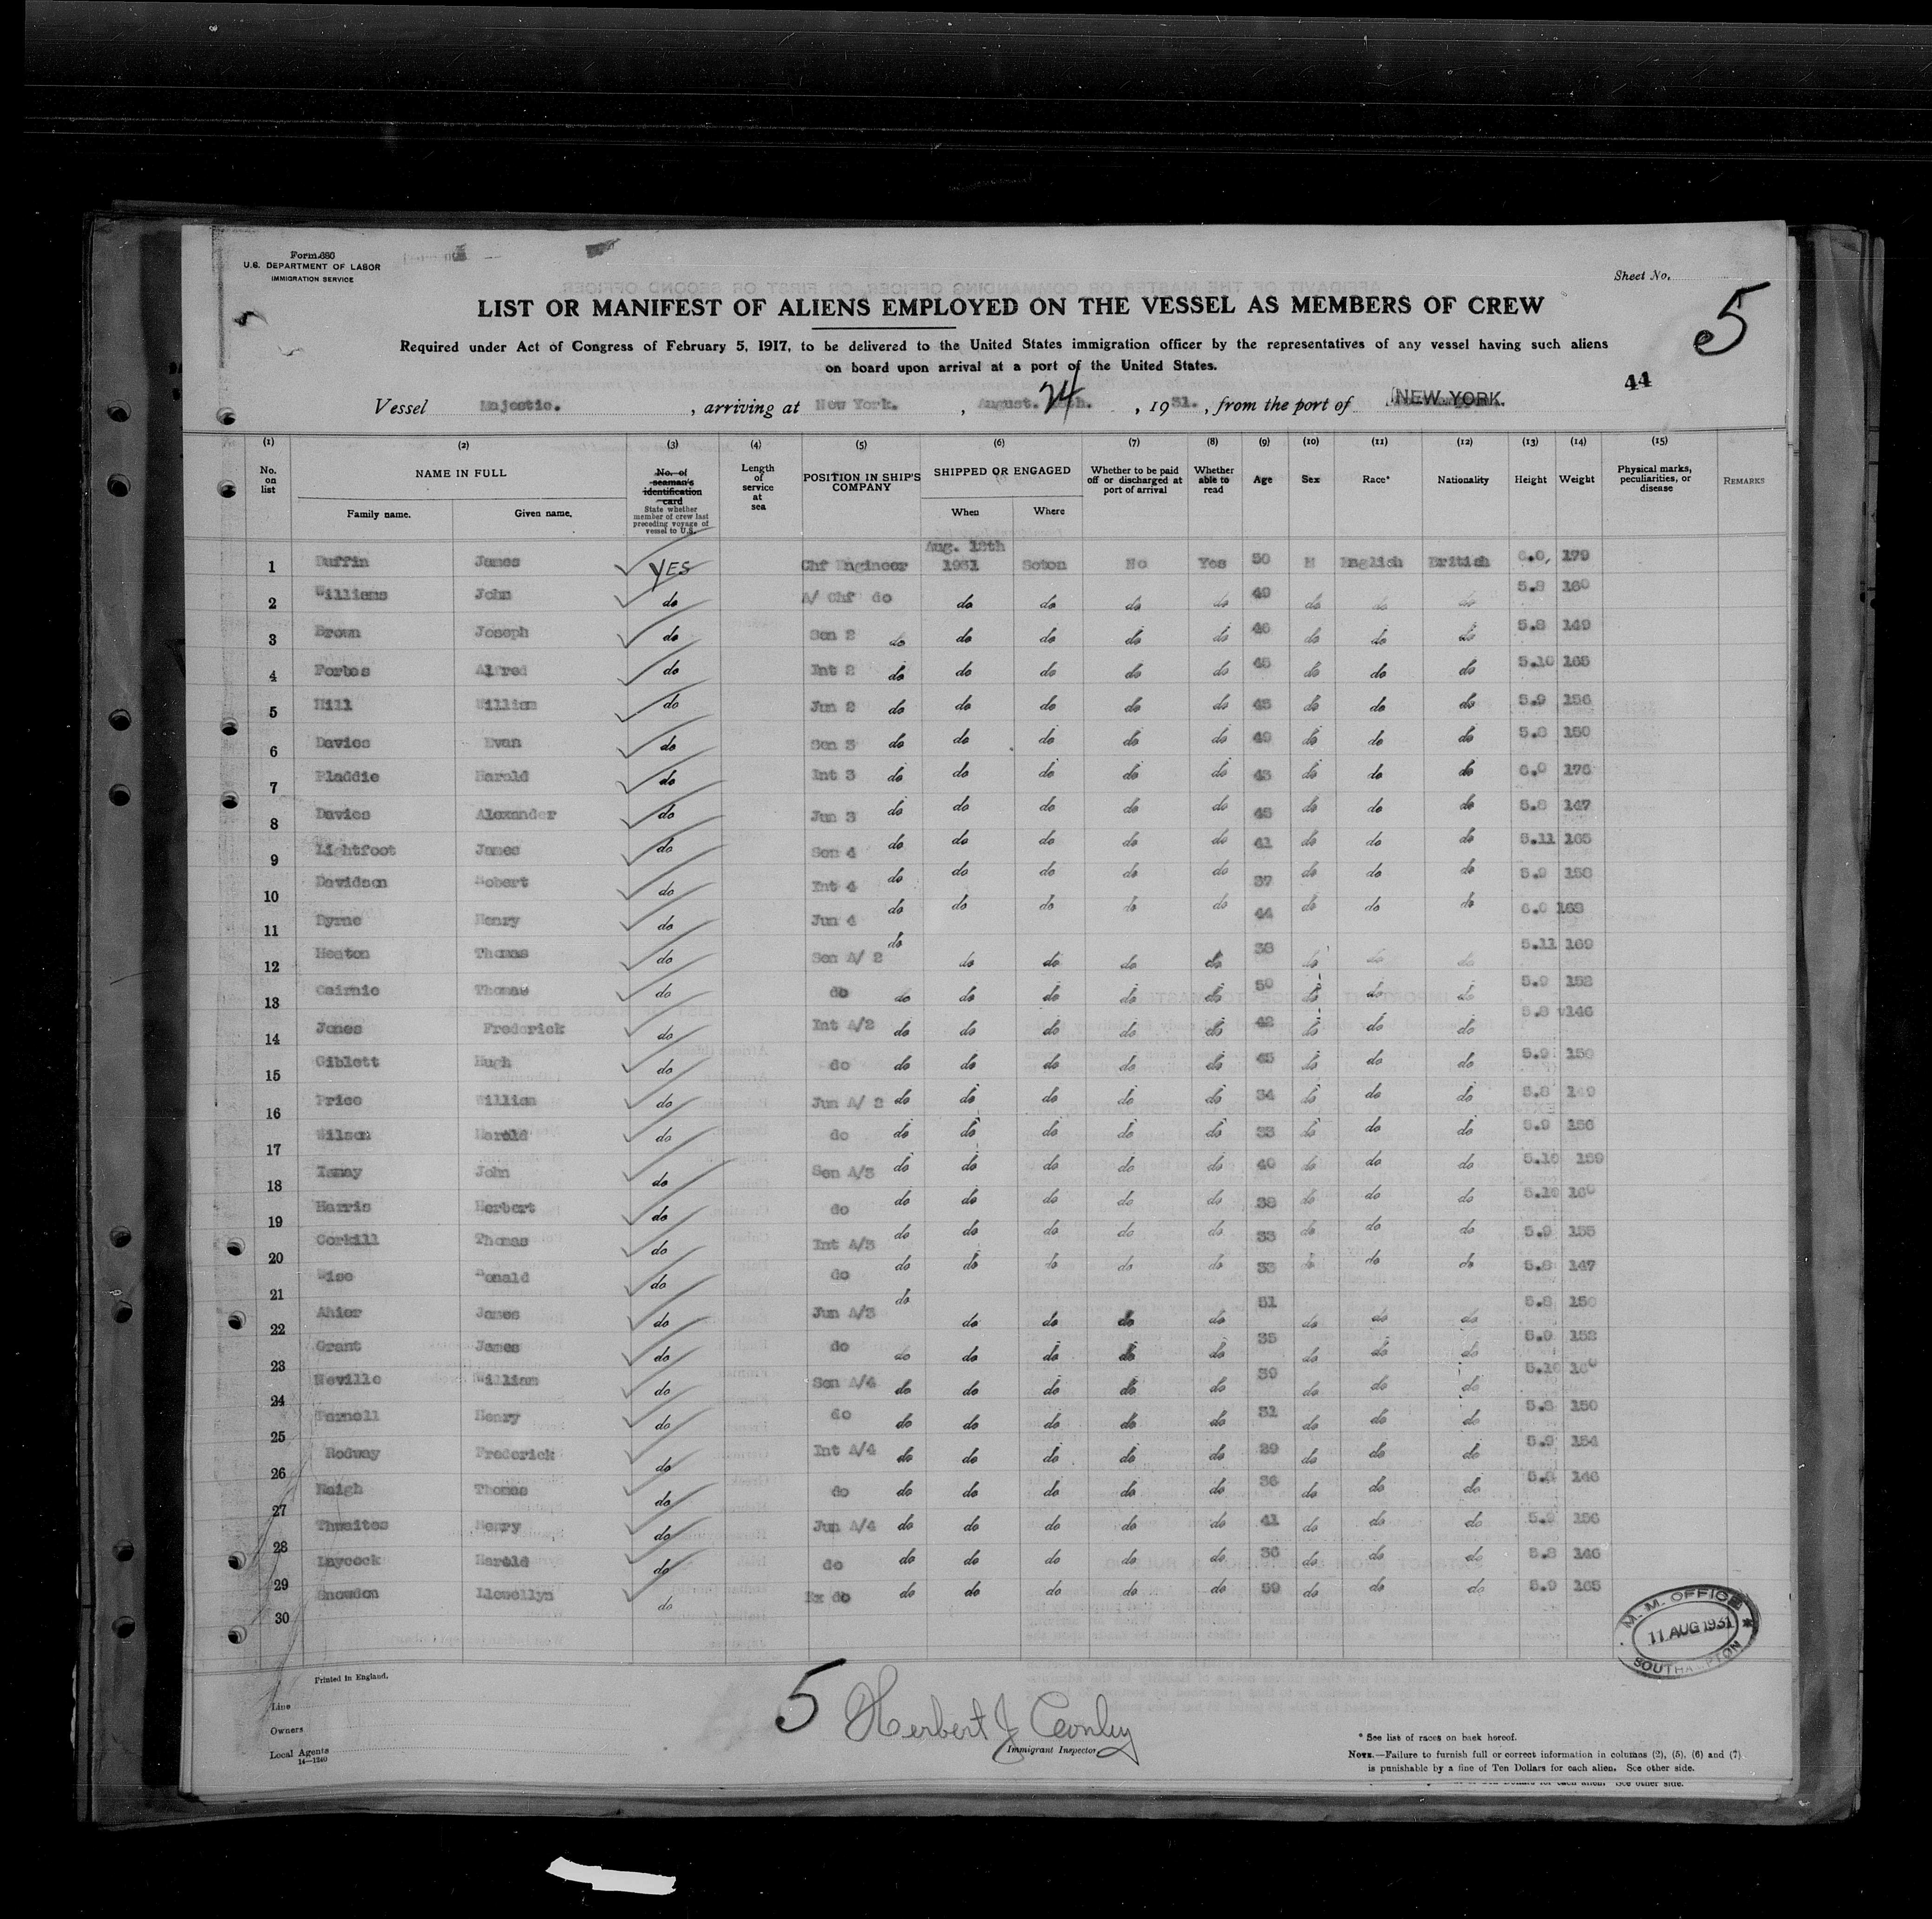 Form 680
U.S. DEPARTMENT OF LABOR
IMMIGRATION SERVICE
Sheet No.
5
LIST OR MANIFEST OF ALIENS EMPLOYED ON THE VESSEL AS MEMBERS OF CREW
Required under Act of Congress of February 5, 1917, to be delivered to the United States immigration officer by the representatives of any vessel having such aliens
on board upon arrival at a port of the United States.
44
Vessel Majestic. , arriving at New York. , August. 24 , 1931. , from the port of NEW YORK.
(1) (2) (3) (4) (5) (6) (7) (8) (9) (10) (11) (12) (13) (14) (15)
No. on list NAME IN FULL Family name. Given name. No. of seaman's identification card State whether member of crew last preceding voyage of vessel to U.S. Length of service at sea POSITION IN SHIP'S COMPANY SHIPPED OR ENGAGED When Where Whether to be paid off or discharged at port of arrival Whether able to read Age Sex Race* Nationality Height Weight Physical marks, peculiarities, or disease REMARKS
Aug. 12th
1 Duffin James YES Chf Engineer 1931 Soton No Yes 50 M English British 6.0, 179
2 Williams John do A/ Chf do do do do do 49 do do do 5.8 160
3 Brown Joseph do Sen 2 do do do do do 46 do do do 5.8 149
4 Forbes Alfred do Int 2 do do do do do 45 do do do 5.10 165
5 Hill William do Jun 2 do do do do do 45 do do do 5.9 156
6 Davies Evan do Sen 3 do do do do do 49 do do do 5.8 150
7 Pladdie Harold do Int 3 do do do do do 43 do do do 6.0 176
8 Davies Alexander do Jun 3 do do do do do 45 do do do 5.8 147
9 Lightfoot James do Sen 4 do do do do do 41 do do do 5.11 165
10 Davidson Robert do Int 4 do do do do do 37 do do do 5.9 158
11 Byrne Henry do Jun 4 do do do do do 44 do do do 6.0 168
12 Heaton Thomas do Sen A/ 2 do do do do do 38 do do do 5.11 169
13 Cairnie Thomas do do do do do do do 50 do do do 5.9 152
14 Jones Frederick do Int A/2 do do do do do 42 do do do 5.8 146
15 Giblett Hugh do do do do do do do 45 do do do 5.9 150
16 Price William do Jun A/ 2 do do do do do 34 do do do 5.8 149
17 Wilson Harold do do do do do do do 33 do do do 5.9 156
18 Ismay John do Sen A/3 do do do do do 40 do do do 5.10 159
19 Harris Herbert do do do do do do do 38 do do do 5.10 160
20 Corkill Thomas do Int A/3 do do do do do 33 do do do 5.9 155
21 Wise Ronald do do do do do do do 33 do do do 5.8 147
22 Ahier James do Jun A/3 do do do do do 51 do do do 5.8 150
23 Grant James do do do do do do do 35 do do do 5.9 152
24 Neville William do Sen A/4 do do do do do 39 do do do 5.10 160
25 Parnell Henry do do do do do do do 31 do do do 5.8 150
26 Rodway Frederick do Int A/4 do do do do do 29 do do do 5.9 154
27 Haigh Thomas do do do do do do do 36 do do do 5.8 146
28 Thwaites Henry do Jun A/4 do do do do do 41 do do do 5.9 156
29 Laycock Harold do do do do do do do 36 do do do 5.8 146
30 Snowdon Llewellyn do Ex do do do do do do 59 do do do 5.9 165
M. M. OFFICE
11 AUG 1931
SOUTHAMPTON
Printed in England.
Line
Owners
Local Agents
14—1240
5 Herbert J Conley
Immigrant Inspector
* See list of races on back hereof.
NOTE.—Failure to furnish full or correct information in columns (2), (5), (6) and (7)
is punishable by a fine of Ten Dollars for each alien. See other side.